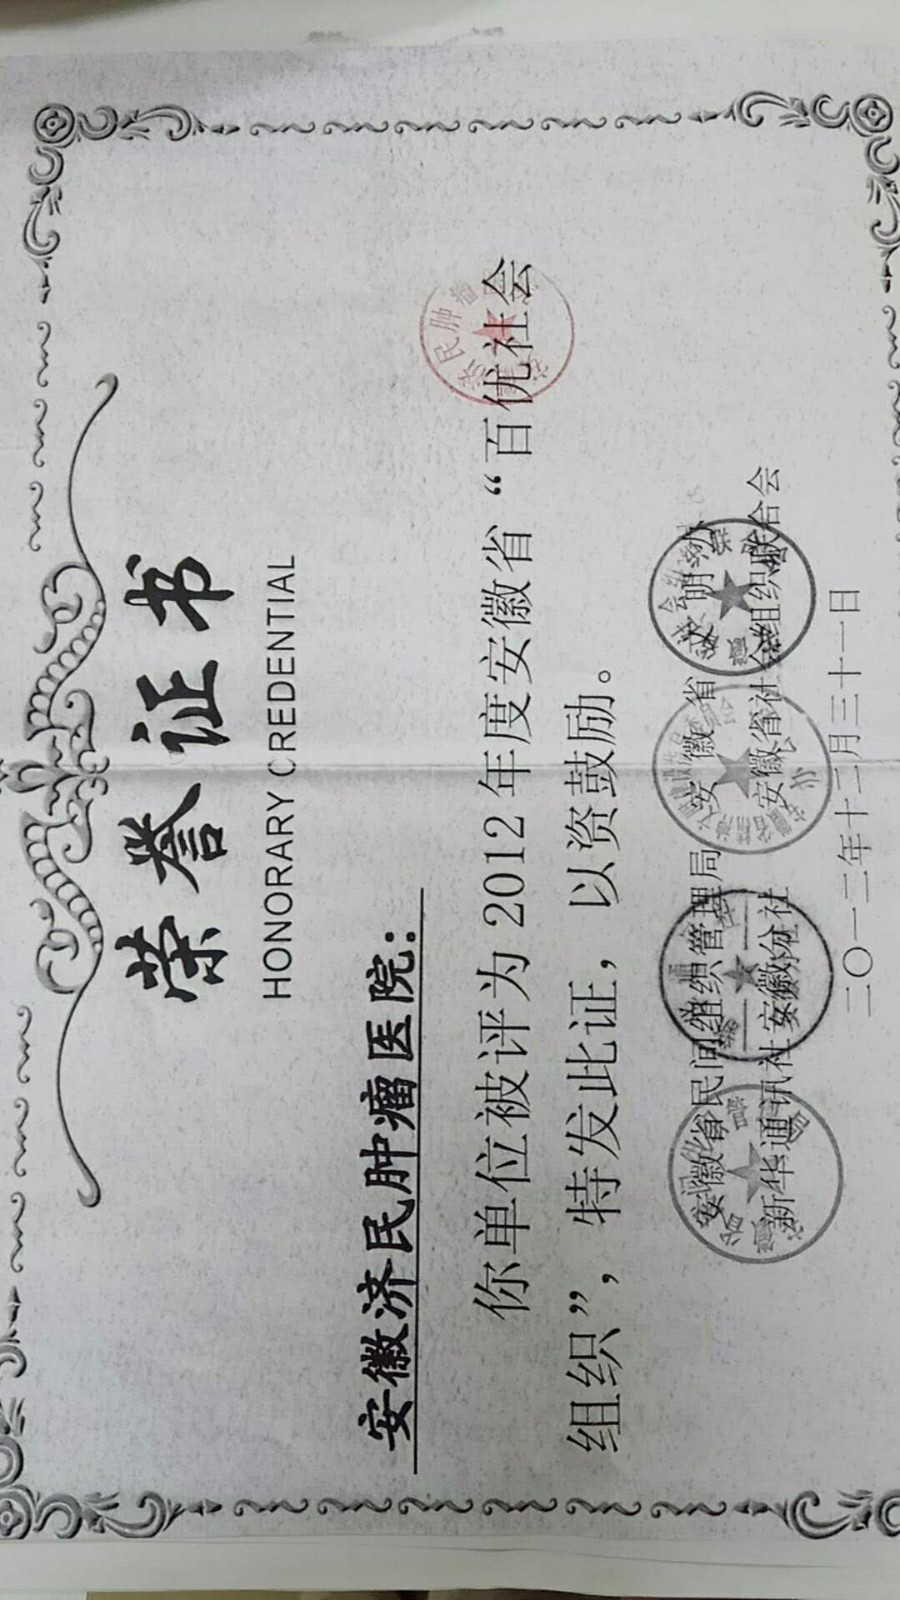 荣誉证书
HONORARY CREDENTIAL
安徽济民肿瘤医院：
你单位被评为2012年度安徽省“百优社会
组织”，特发此证，以资鼓励。
安徽省民间组织管理局 安徽省文明办
新华通讯社安徽分社 安徽省社会组织联合会
二〇一二年十二月三十一日
济民肿瘤